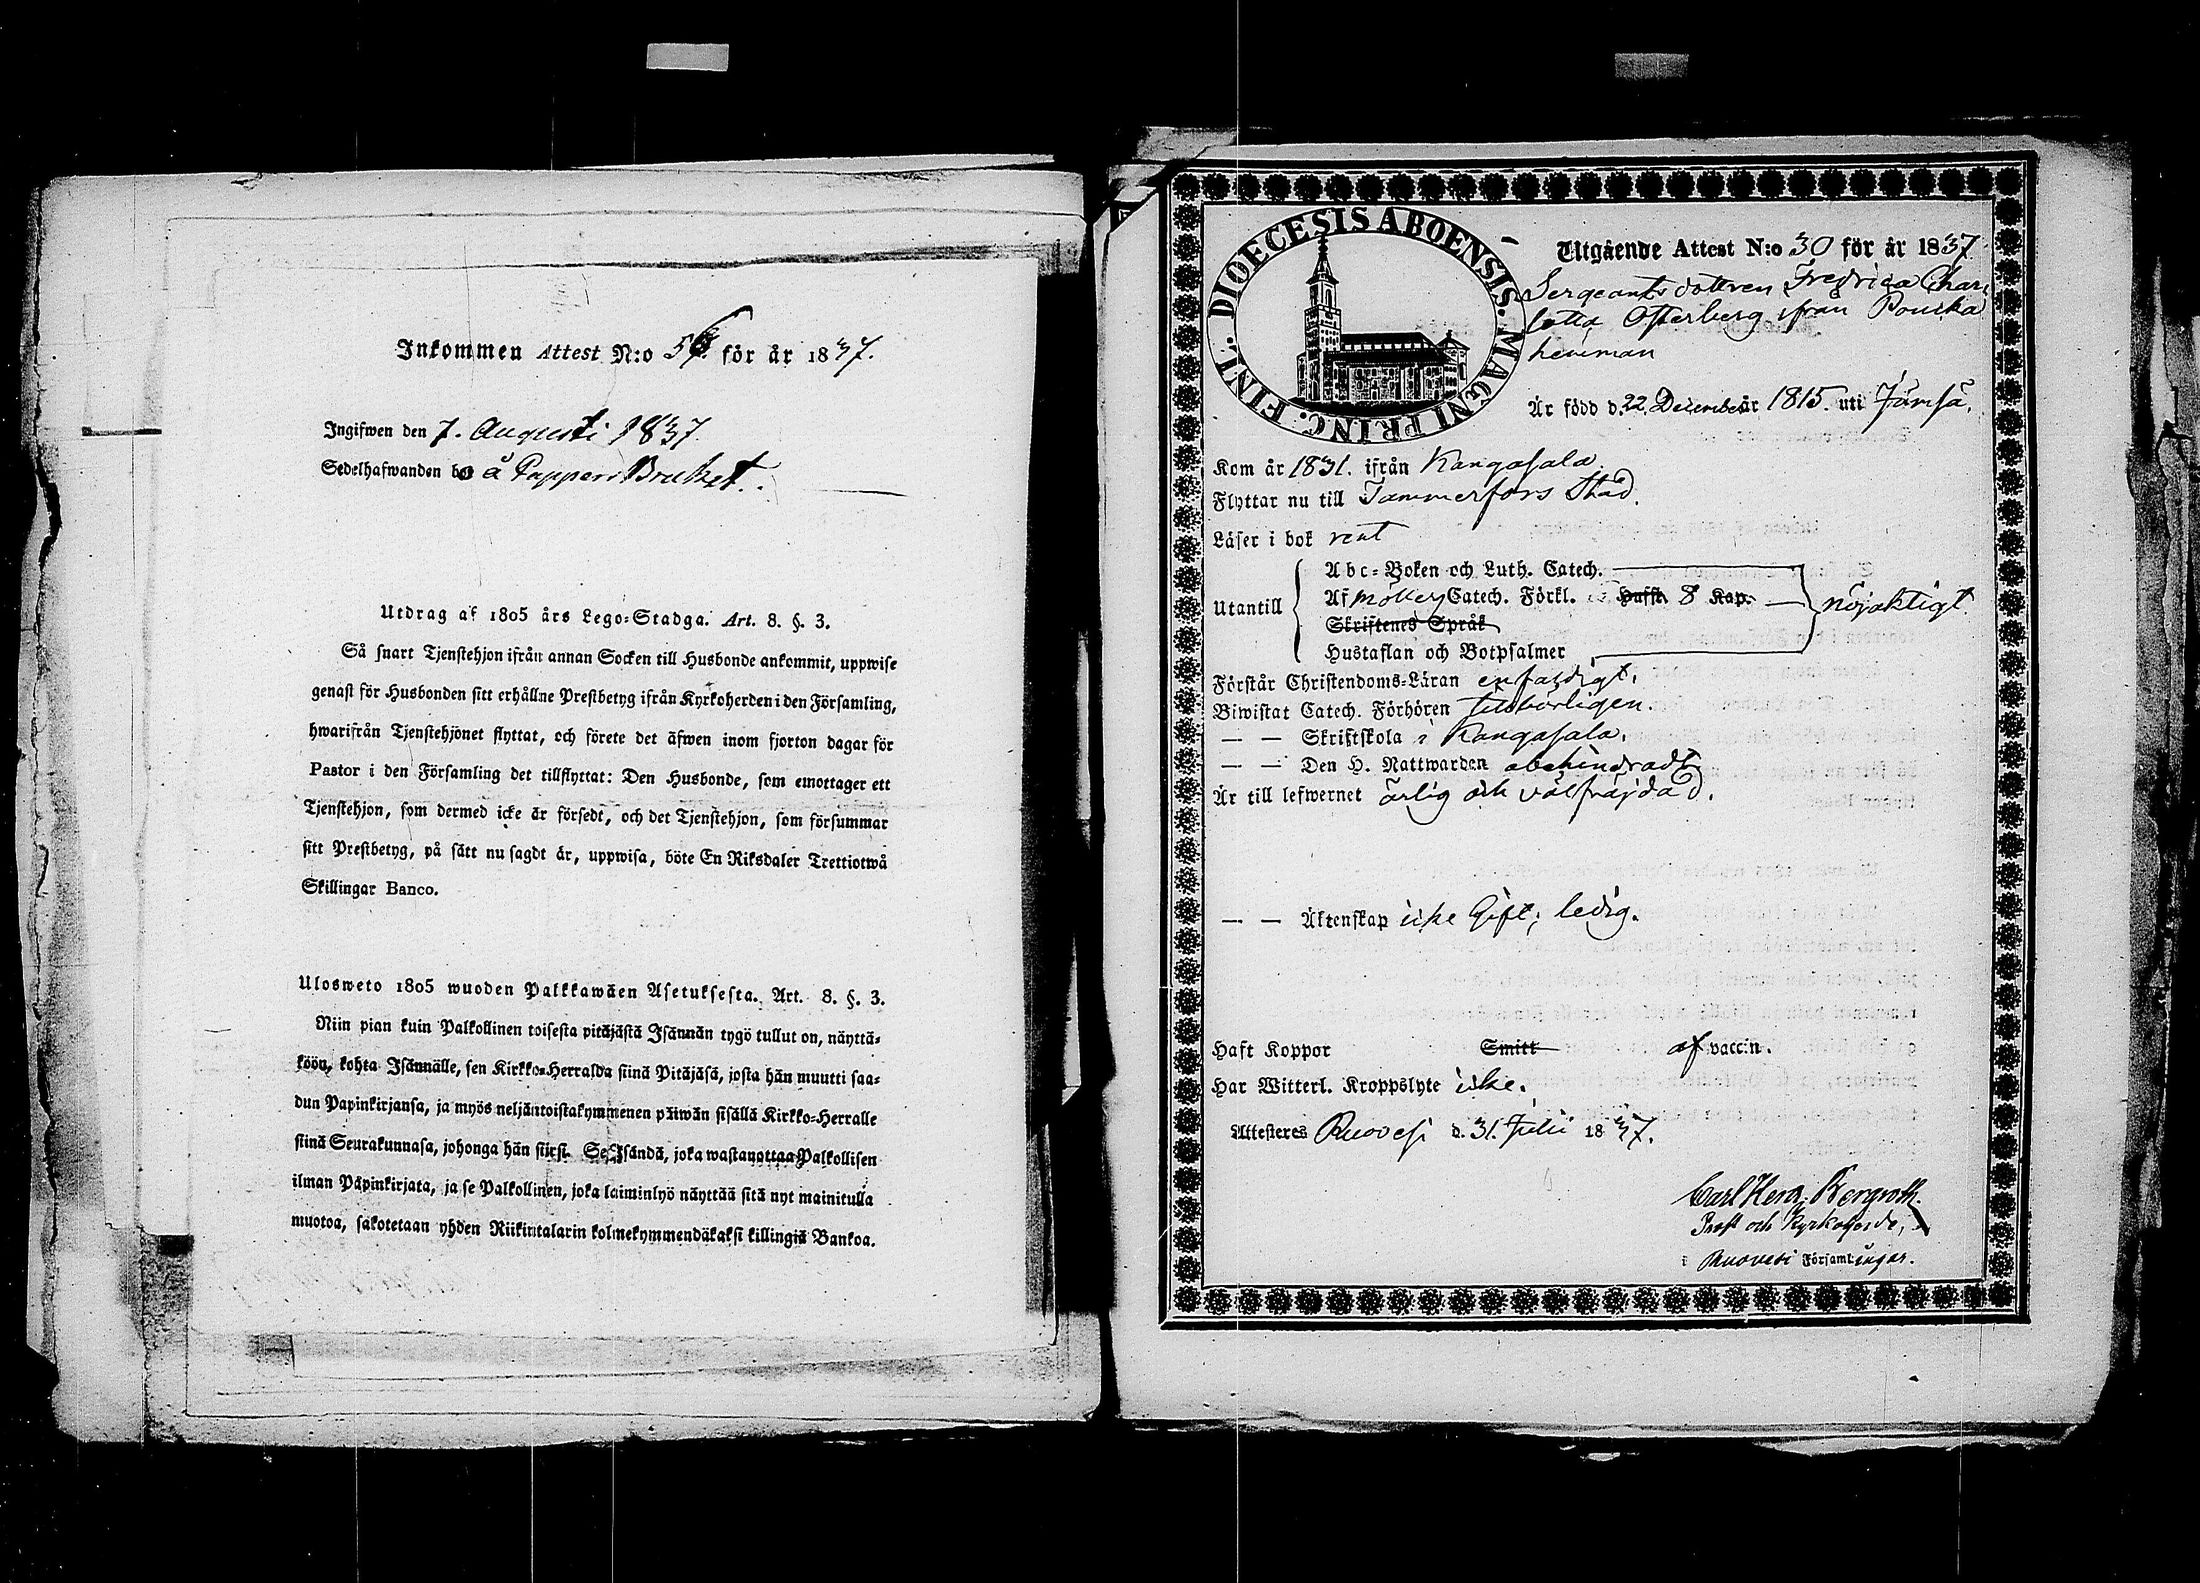 Inkommen Attest N:o 56. för år 1837.
Ingifwen den 7. Augusti 1837.
Sedelhafwanden bor å Pappers Bruket.
Utdrag af 1805 års Lego-Stadga. Art. 8. §. 3.
Så snart Tjenstehjon ifrån annan Socken till Husbonde ankommit, uppwise
genast för Husbonden sitt erhållne Prestbetyg ifrån Kyrkoherden i den Församling,
hwarifrån Tjenstehjonet flyttat, och förete det äfwen inom fjorton dagar för
Pastor i den Församling det tillflyttat: Den Husbonde, som emottager ett
Tjenstehjon, som dermed icke är försedt, och det Tjenstehjon, som försummar
sitt Prestbetyg, på sätt nu sagdt är, uppwisa, böte En Riksdaler Trettiotwå
Skillingar Banco.
Ulosweto 1805 wuoden Palkkawäen Asetuksesta. Art. 8. §. 3.
Niin pian kuin Palkollinen toisesta pitäjästä Isännän tygö tullut on, näyttä-
köön, kohta Isännälle, sen Kirkko-Herralda siinä Pitäjäsä, josta hän muutti saa-
dun Papinkirjansa, ja myös neljäntoistakymmenen päiwän sisällä Kirkko-Herralle
siinä Seurakunnasa, johonga hän siirsi. Se Isändä, joka wastanottaa Palkollisen
ilman Papinkirjata, ja se Palkollinen, joka laiminlyö näyttää sitä nyt mainitulla
muotoa, sakotetaan yhden Riikintalarin kolmekymmendäkaksi killingiä Bankoa.
DIOECESIS ABOENSIS. MAGNI PRINC. FINL.
Utgående Attest N:o 30 för år 1837.
Sergeants dottren Fredrica Char
lotta Osterberg ifrån Pouska
hemman
Är född d. 22. December år 1815. uti Jämsä.
Kom år 1831. ifrån Kangasala.
Flyttar nu till Tammerfors Stad.
Läser i bok rent
Utantill
Abc-Boken och Luth. Catech.
Af Möllers Catech. Förkl. Hufst. 8 Kap.
Skriftenes Språk
Hustaflan och Botpsalmer
nöjaktigt.
Förstår Christendoms-Läran enfaldigt.
Biwistat Catech. Förhören tillbörligen.
— — Skriftskola i Kangasala.
— — Den H. Nattwarden obehindradt
Är till lefwernet ärlig och välfräjdad.
— — Äktenskap icke Gift; ledig.
Haft Koppor Smitt af vaccin.
Har Witterl. Kroppslyte icke.
Attesteres Ruovesi d. 31. Julii 1837.
Carl Herm. Bergroth.
Prost och Kyrkoherde,
i Ruovesi Församlingar.